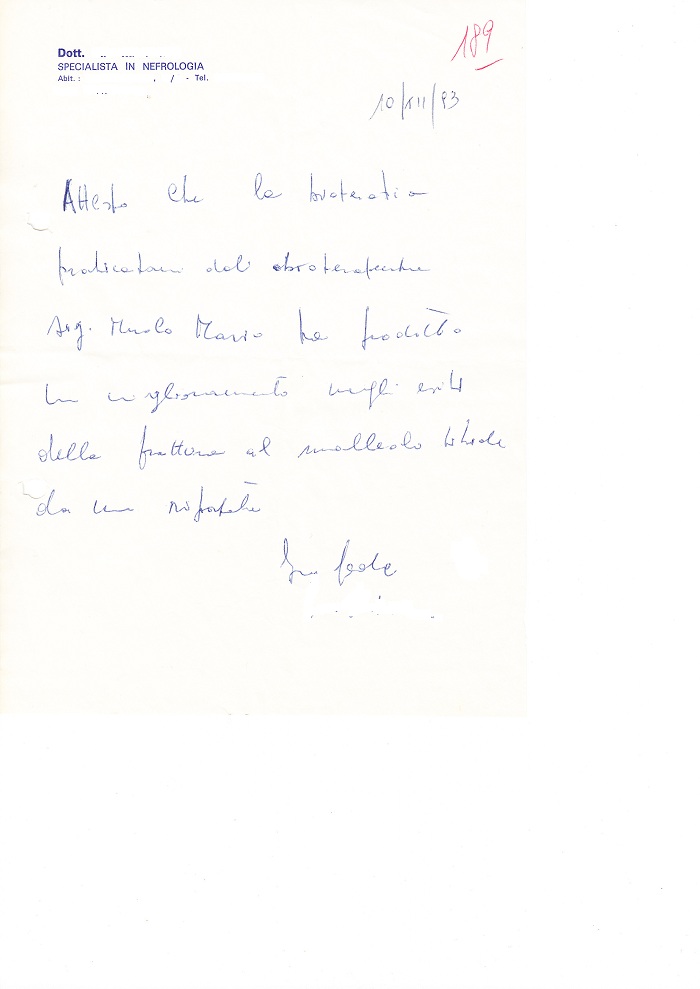 189
Dott.
SPECIALISTA IN NEFROLOGIA
Abit. : , / - Tel.
10/XII/93
Attesto che la
praticatami dal
Sig. Mario ha prodotto
un miglioramento negli esiti
della frattura al malleolo tibiale
da me riportata
In fede